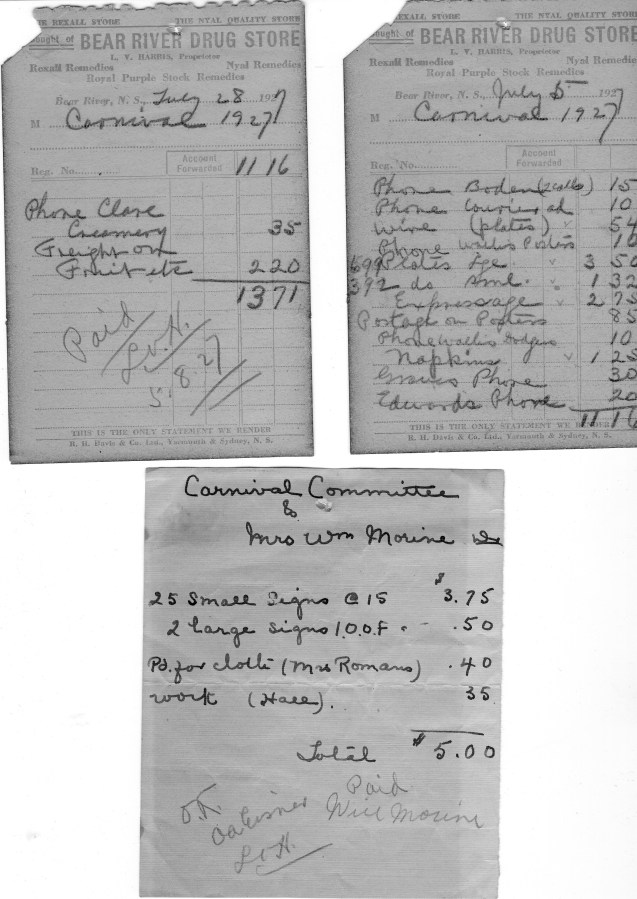 THE REXALL STORE THE NYAL QUALITY STORE
Bought of BEAR RIVER DRUG STORE
L. V. HARRIS, Proprietor
Rexall Remedies Nyal Remedies
Royal Purple Stock Remedies
Bear River, N. S., July 28 1927
M Carnival 1927
Reg. No. Account Forwarded 11 16
Phone Clare
Creamery 35
Freight on
Fruit etc 2 20
13 71
Paid
L.V.H.
5/8/27
THIS IS THE ONLY STATEMENT WE RENDER
R. H. Davis & Co. Ltd., Yarmouth & Sydney, N. S.
REXALL STORE THE NYAL QUALITY STORE
Bought of BEAR RIVER DRUG STORE
L. V. HARRIS, Proprietor
Rexall Remedies Nyal Remedies
Royal Purple Stock Remedies
Bear River, N. S., July 5 1927
M Carnival 1927
Reg. No. Account Forwarded
Phone Boden (2 calls) 15
Phone Courier ad 10
Wire (plates) 54
Phone Wallis Posters 10
699 Plates Lge 3 50
392 do Sml. 1 32
Expressage 2 75
Postage on Posters 85
Phone Wallis Dodgers 10
Napkins 1 25
Graves Phone 30
Edwards Phone 20
11 16
THIS IS THE ONLY STATEMENT WE RENDER
R. H. Davis & Co. Ltd., Yarmouth & Sydney, N. S.
Carnival Committee
to
Mrs Wm Morine Dr
25 Small Signs @ 15 $3.75
2 large signs I.O.O.F " - .50
Pd. for cloth (Mrs Romans) .40
work (Hall). 35
Total $5.00
O.K.
L.V.H.
Paid
Will Morine